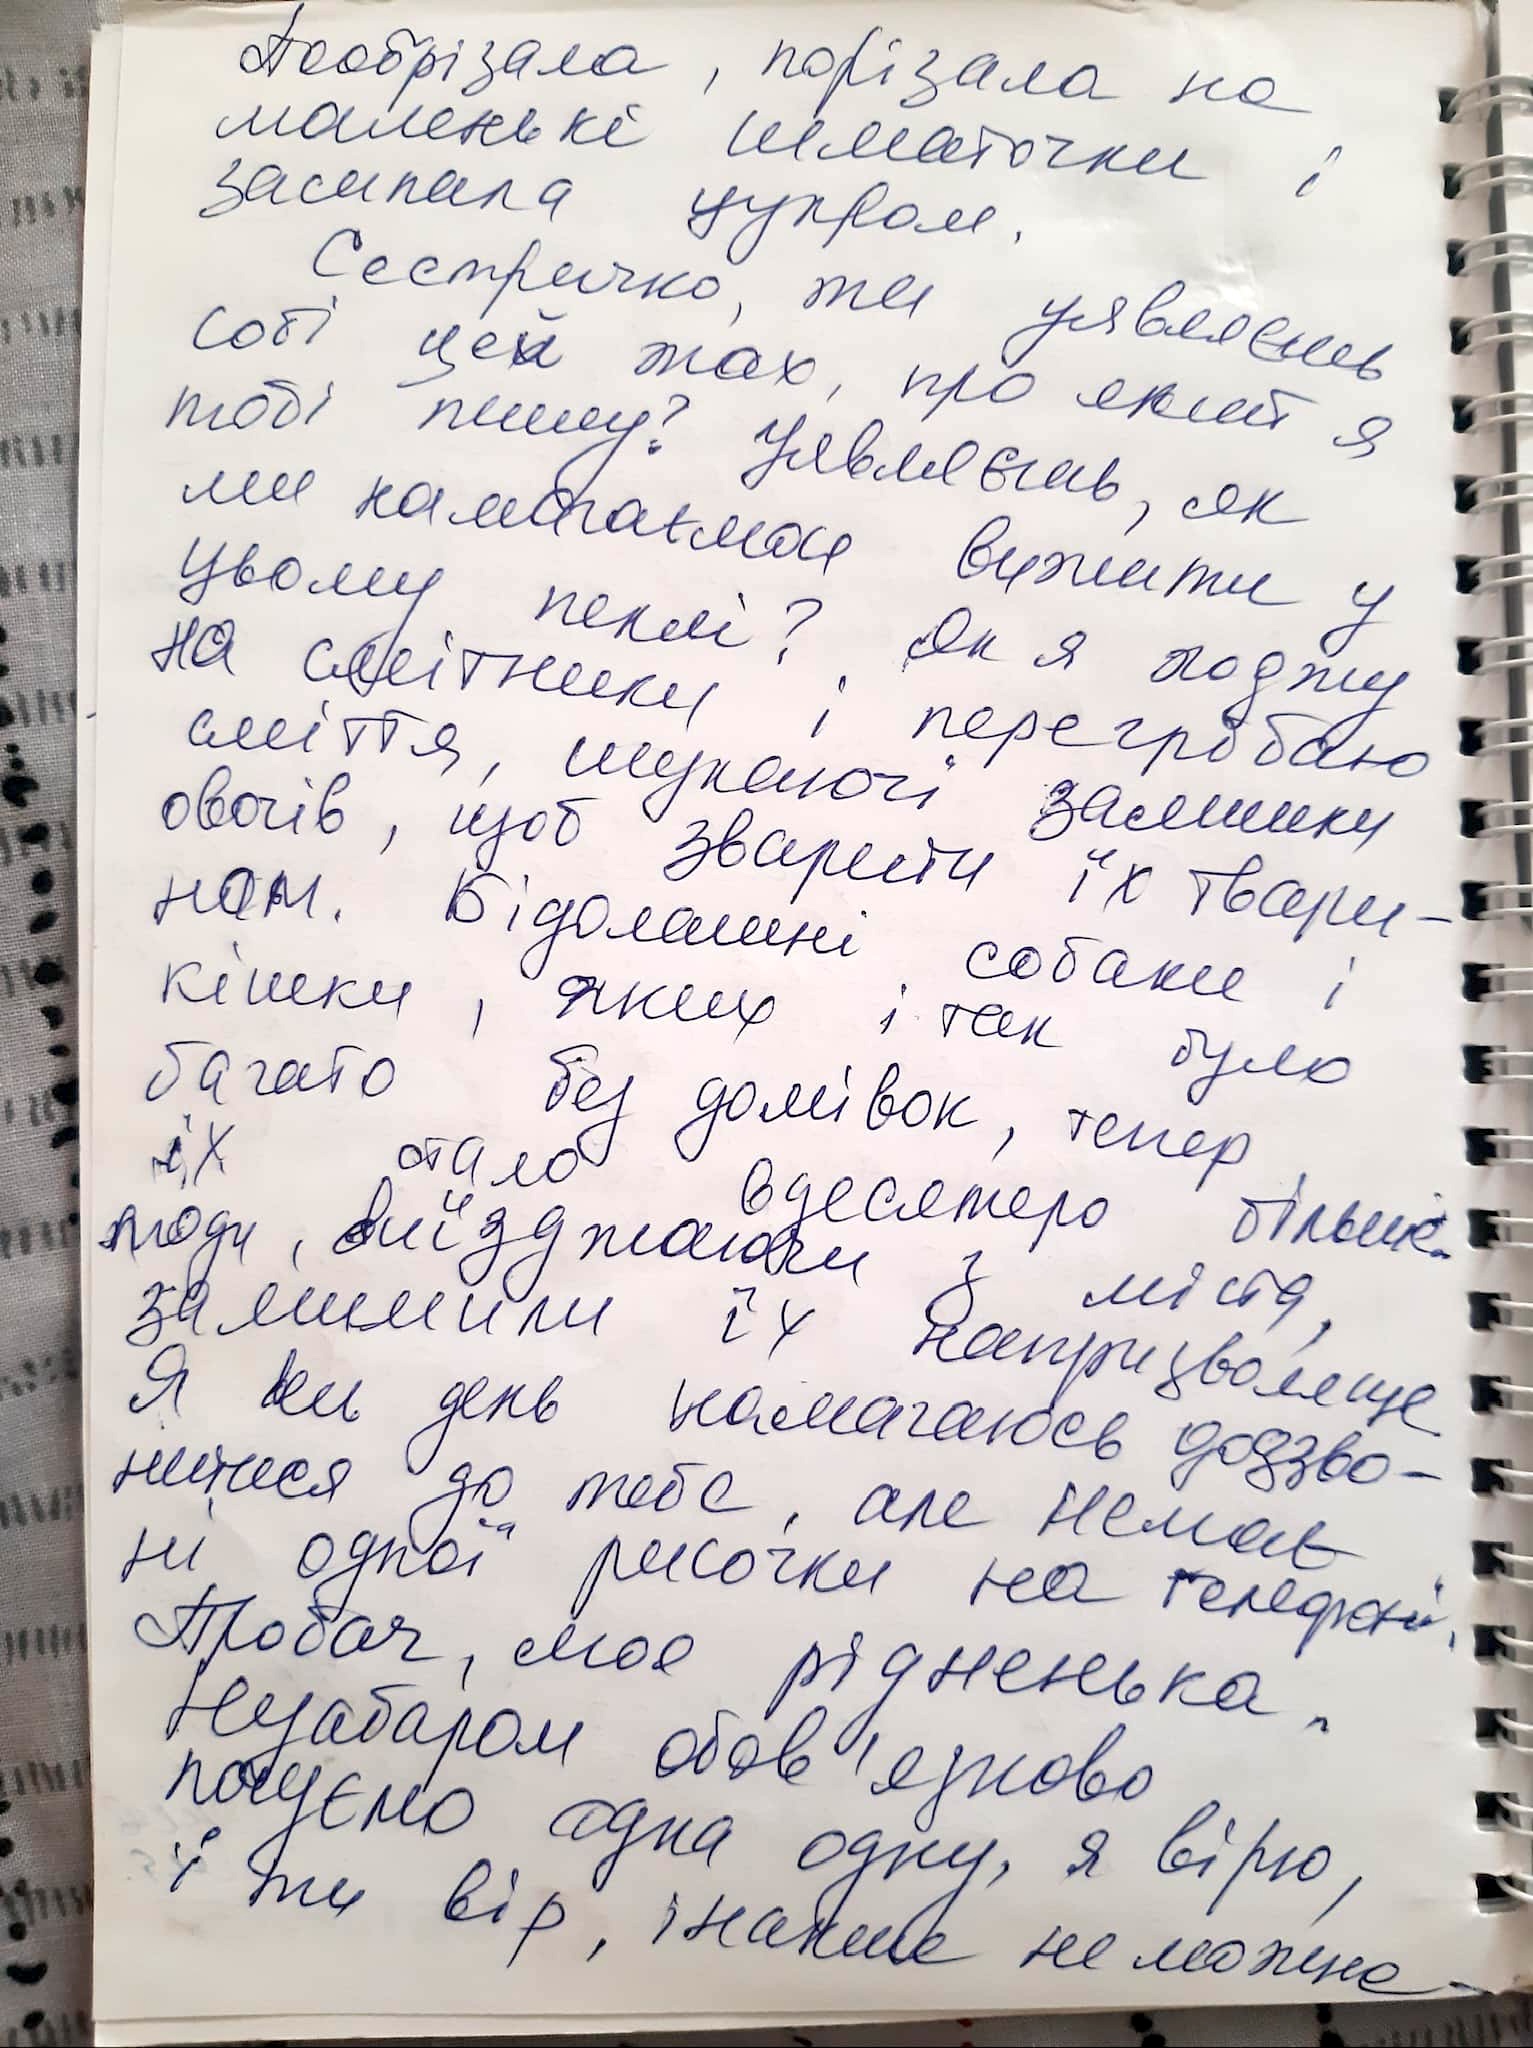 Пообрізала, порізала на
маленькі шматочки і
засипала цукром.
Сестричко, ти уявляєшь
собі цей жах, про який я
тобі пишу? Уявляєшь, як
ми намагаємося вижити у
цьому пеклі? Як я ходжу
на смітники і перегрібаю
сміття, шукаючі залишки
овочів, щоб зварити їх твари-
нам. Бідолашні собаки і
кішки, яких і так було
багато без домівок, тепер
їх стало вдесятеро більше.
люди, виїзджаючи з міста,
залишили їх напризволяще
Я ць день намагаюсь додзво-
нитися до тебе, але немає
ні одної рисочки на телефоні.
Пробач, моя рідненька.
Незабаром обов'язково
почуємо одна одну, я вірю,
і ти вір, інакше не можна –